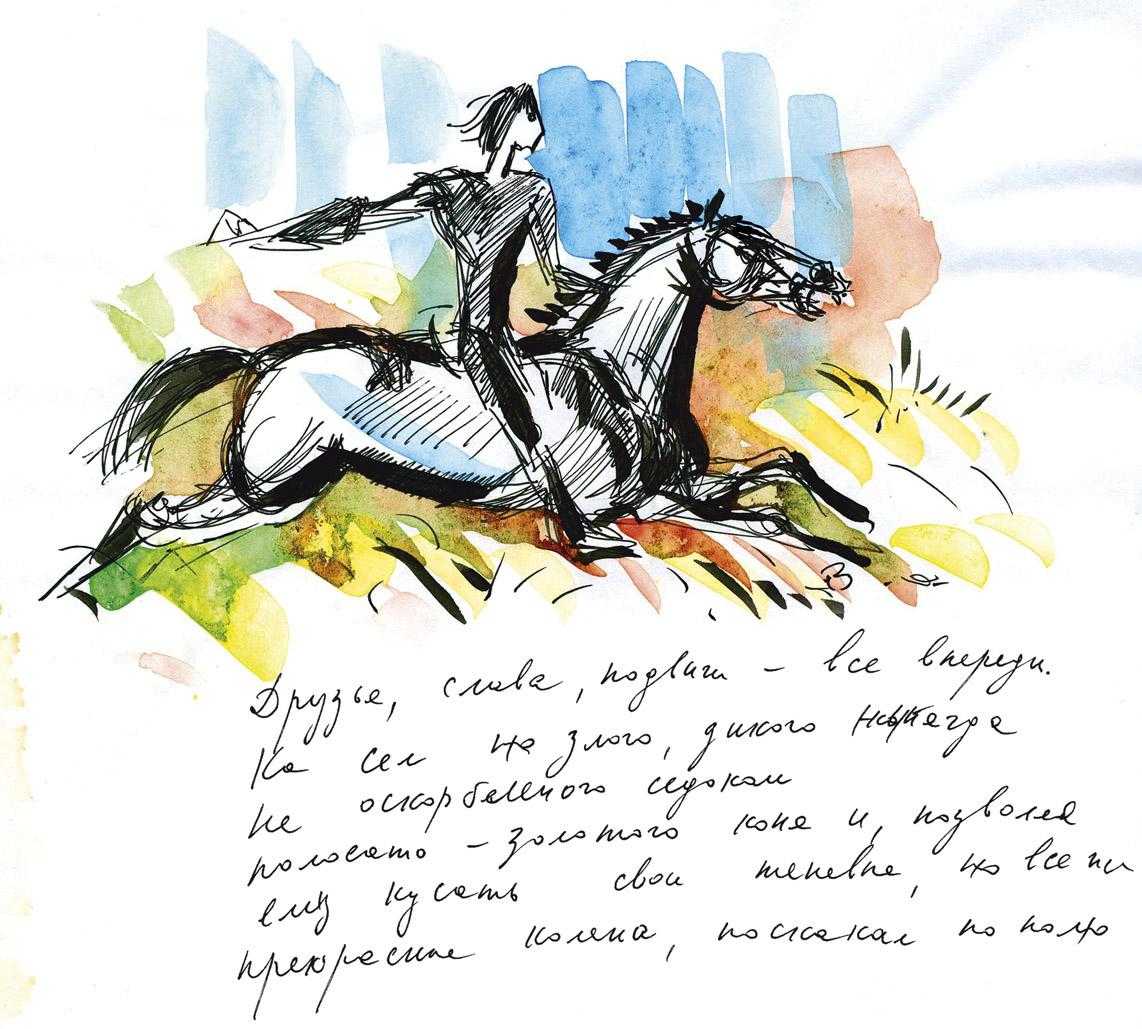 Друзья, слава, подвиги – все впереди.
Ка сел на злого, дикого никогда
не оскорбленного седоком
полосато – золотого коня и, позволяя
ему кусать свои теневые, но все же
прекрасные колена, поскакал по полю